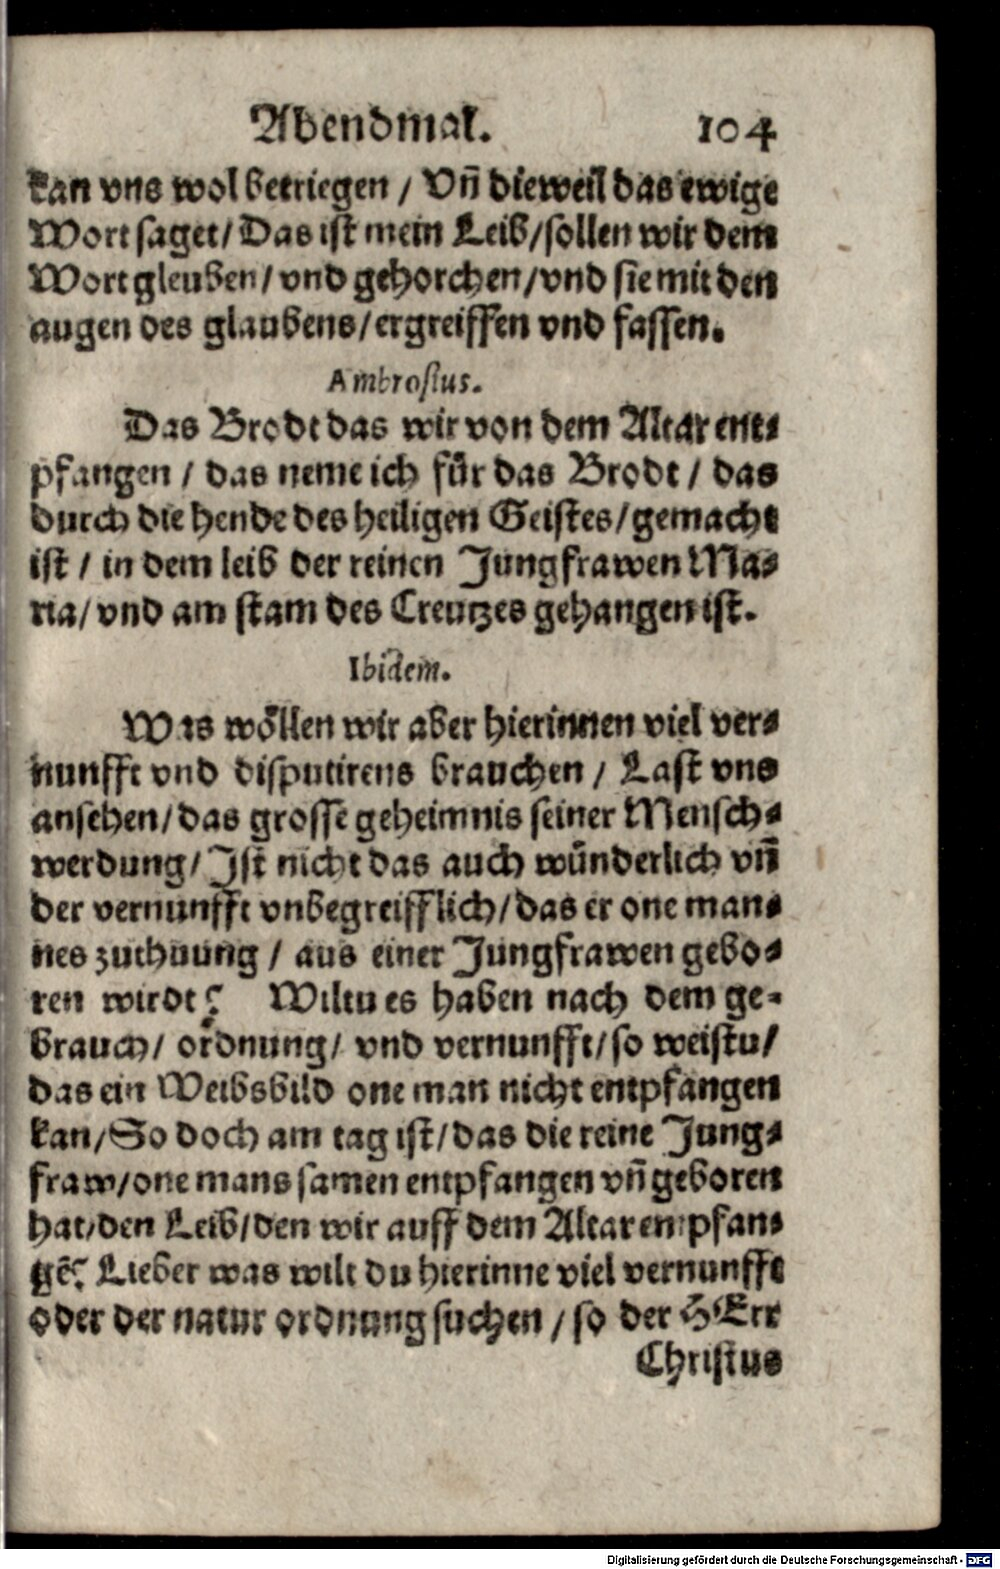 Abendmal. 104
kan vns wol betriegen / Vn̄ dieweil das ewige
Wort saget / Das ist mein Leib / sollen wir dem
Wort gleuben / vnd gehorchen / vnd sie mit den
augen des glaubens / ergreiffen vnd fassen.
Ambrosius.
Das Brodt das wir von dem Altar ent⸗
pfangen / das neme ich für das Brodt / das
durch die hende des heiligen Geistes / gemacht
ist / in dem leib der reinen Jungfrawen Ma⸗
ria / vnd am stam des Creutzes gehangen ist.
Ibidem.
Was wöllen wir aber hierinnen viel ver⸗
nunfft vnd disputirens brauchen / Last vns
ansehen / das grosse geheimnis seiner Mensch⸗
werdung / Ist nicht das auch wünderlich vn̄
der vernunfft vnbegreifflich / das er one man⸗
nes zuthuung / aus einer Jungfrawen gebo⸗
ren wirdt? Wiltu es haben nach dem ge⸗
brauch / ordnung / vnd vernunfft / so weistu /
das ein Weibsbild one man nicht entpfangen
kan / So doch am tag ist / das die reine Jung⸗
fraw / one mans samen entpfangen vn̄ geboren
hat / den Leib / den wir auff dem Altar entpfan⸗
gē? Lieber was wilt du hierinne viel vernunfft
oder der natur ordnung suchen / so der HErr
Christus
Digitalisierung gefördert durch die Deutsche Forschungsgemeinschaft - DFG